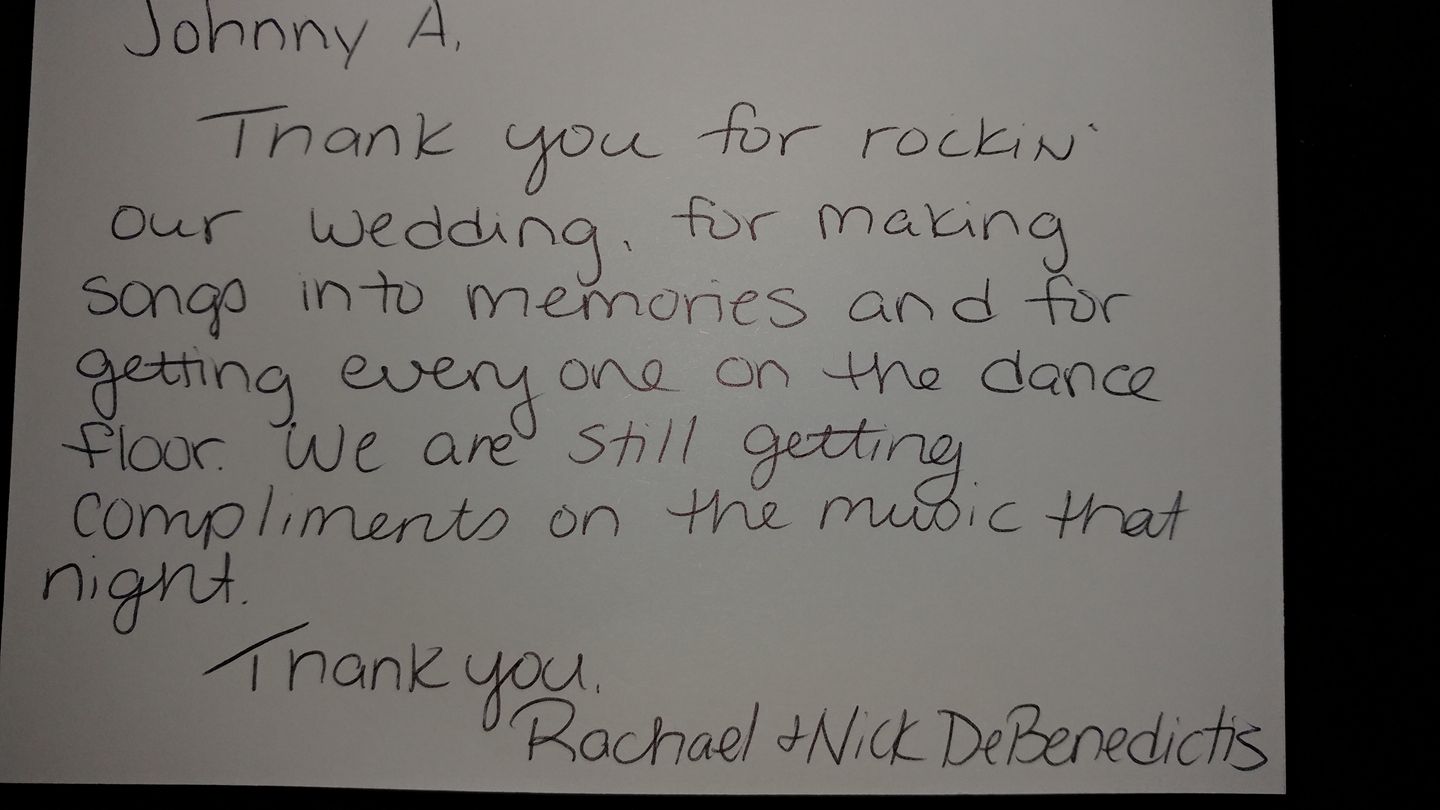 Johnny A.
Thank you for rockin'
our wedding, for making
songs into memories and for
getting everyone on the dance
floor. We are still getting
compliments on the music that
night.
Thank you.
Rachael + Nick DeBenedictis